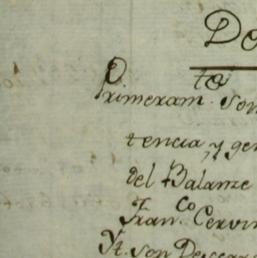 Do
Primeram.te son
tencia, y gen
del Balanze
Fran.co Cervin
Yt. son Descar